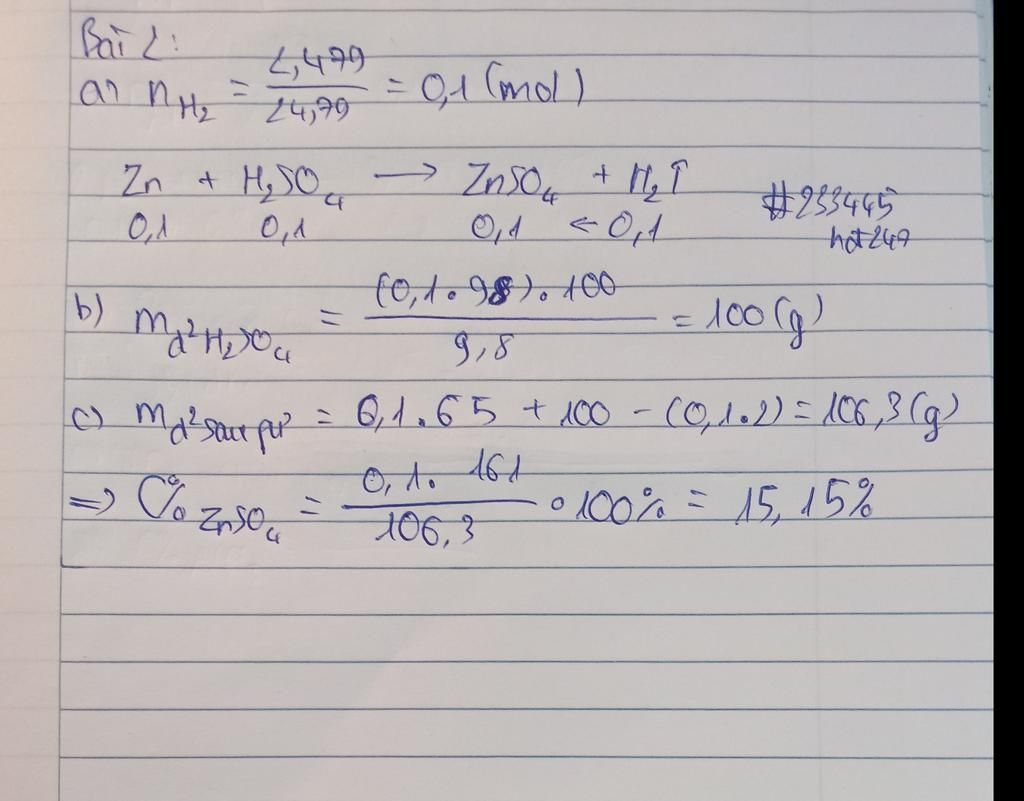 Bài 2:
a) nH₂ = 2,479 / 24,79 = 0,1 (mol)
Zn + H₂SO₄ → ZnSO₄ + H₂↑
0,1 0,1 0,1 ← 0,1
#233445
hot249
b) md²H₂SO₄ = (0,1 . 98) . 100 / 9,8 = 100 (g)
c) md² sau pư = 0,1 . 65 + 100 - (0,1 . 2) = 106,3 (g)
=> C% ZnSO₄ = 0,1 . 161 / 106,3 . 100% = 15,15%